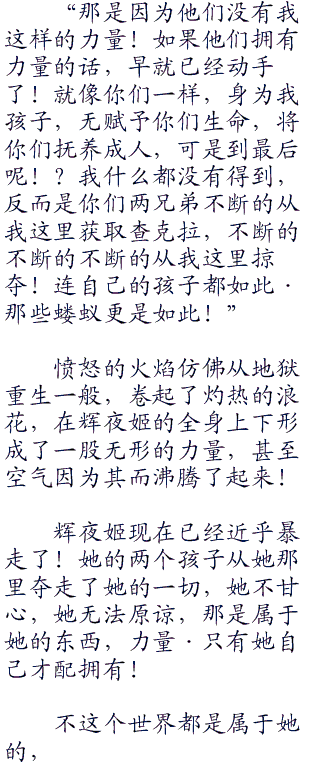 “那是因为他们没有我
这样的力量！如果他们拥有
力量的话，早就已经动手
了！就像你们一样，身为我
孩子，无赋予你们生命，将
你们抚养成人，可是到最后
呢！？我什么都没有得到，
反而是你们两兄弟不断的从
我这里获取查克拉，不断的
不断的不断的从我这里掠
夺！连自己的孩子都如此·
那些蝼蚁更是如此！”
愤怒的火焰仿佛从地狱
重生一般，卷起了灼热的浪
花，在辉夜姬的全身上下形
成了一股无形的力量，甚至
空气因为其而沸腾了起来！
辉夜姬现在已经近乎暴
走了！她的两个孩子从她那
里夺走了她的一切，她不甘
心，她无法原谅，那是属于
她的东西，力量·只有她自
己才配拥有！
不这个世界都是属于她
的，